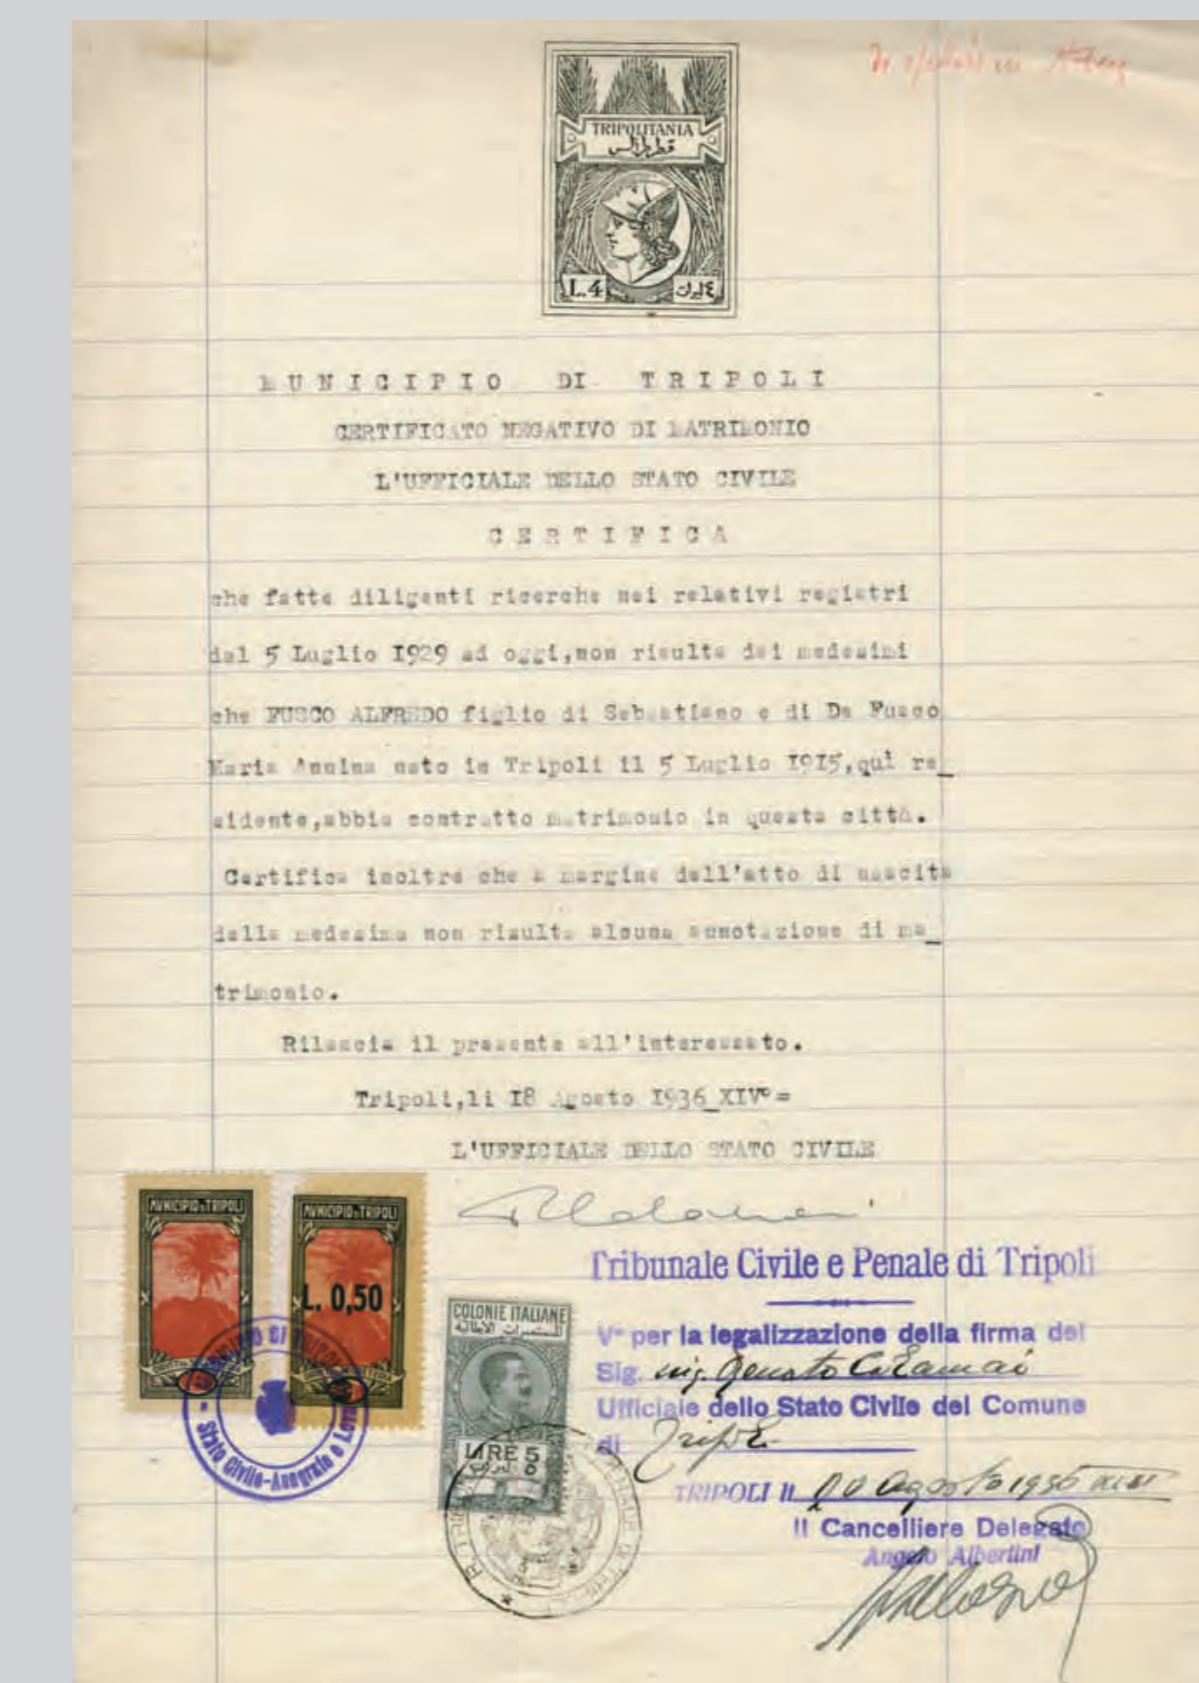 TRIPOLITANIA
قطر طرابلس
L.4
٤ ليرات
MUNICIPIO DI TRIPOLI
CERTIFICATO NEGATIVO DI MATRIMONIO
L'UFFICIALE DELLO STATO CIVILE
CERTIFICA
che fatte diligenti ricerche nei relativi registri
dal 5 Luglio 1929 ad oggi,non risulta dai medesimi
che FUSCO ALFREDO figlio di Sebastiano e di De Fusco
Maria Annina nato in Tripoli il 5 Luglio 1915,quì re_
sidente,abbia contratto matrimonio in questa città.
Certifica inoltre che a margine dell'atto di nascita
della medesima non risulta alcuna annotazione di ma_
trimonio.
Rilascia il presente all'interessato.
Tripoli,li 18 Agosto 1936_XIV°=
L'UFFICIALE DELLO STATO CIVILE
MVNICIPIO DI TRIPOLI
MVNICIPIO DI TRIPOLI
L. 0,50
MUNICIPIO DI TRIPOLI
Stato Civile-Anagrafe e
COLONIE ITALIANE
المستعمرات الايطالية
LIRE 5
Tribunale Civile e Penale di Tripoli
V° per la legalizzazione della firma del
Sig. sig. Renato Calamai
Ufficiale dello Stato Civile del Comune
di Tripoli
TRIPOLI li 20 Agosto 1936
Il Cancelliere Delegato
Angelo Albertini